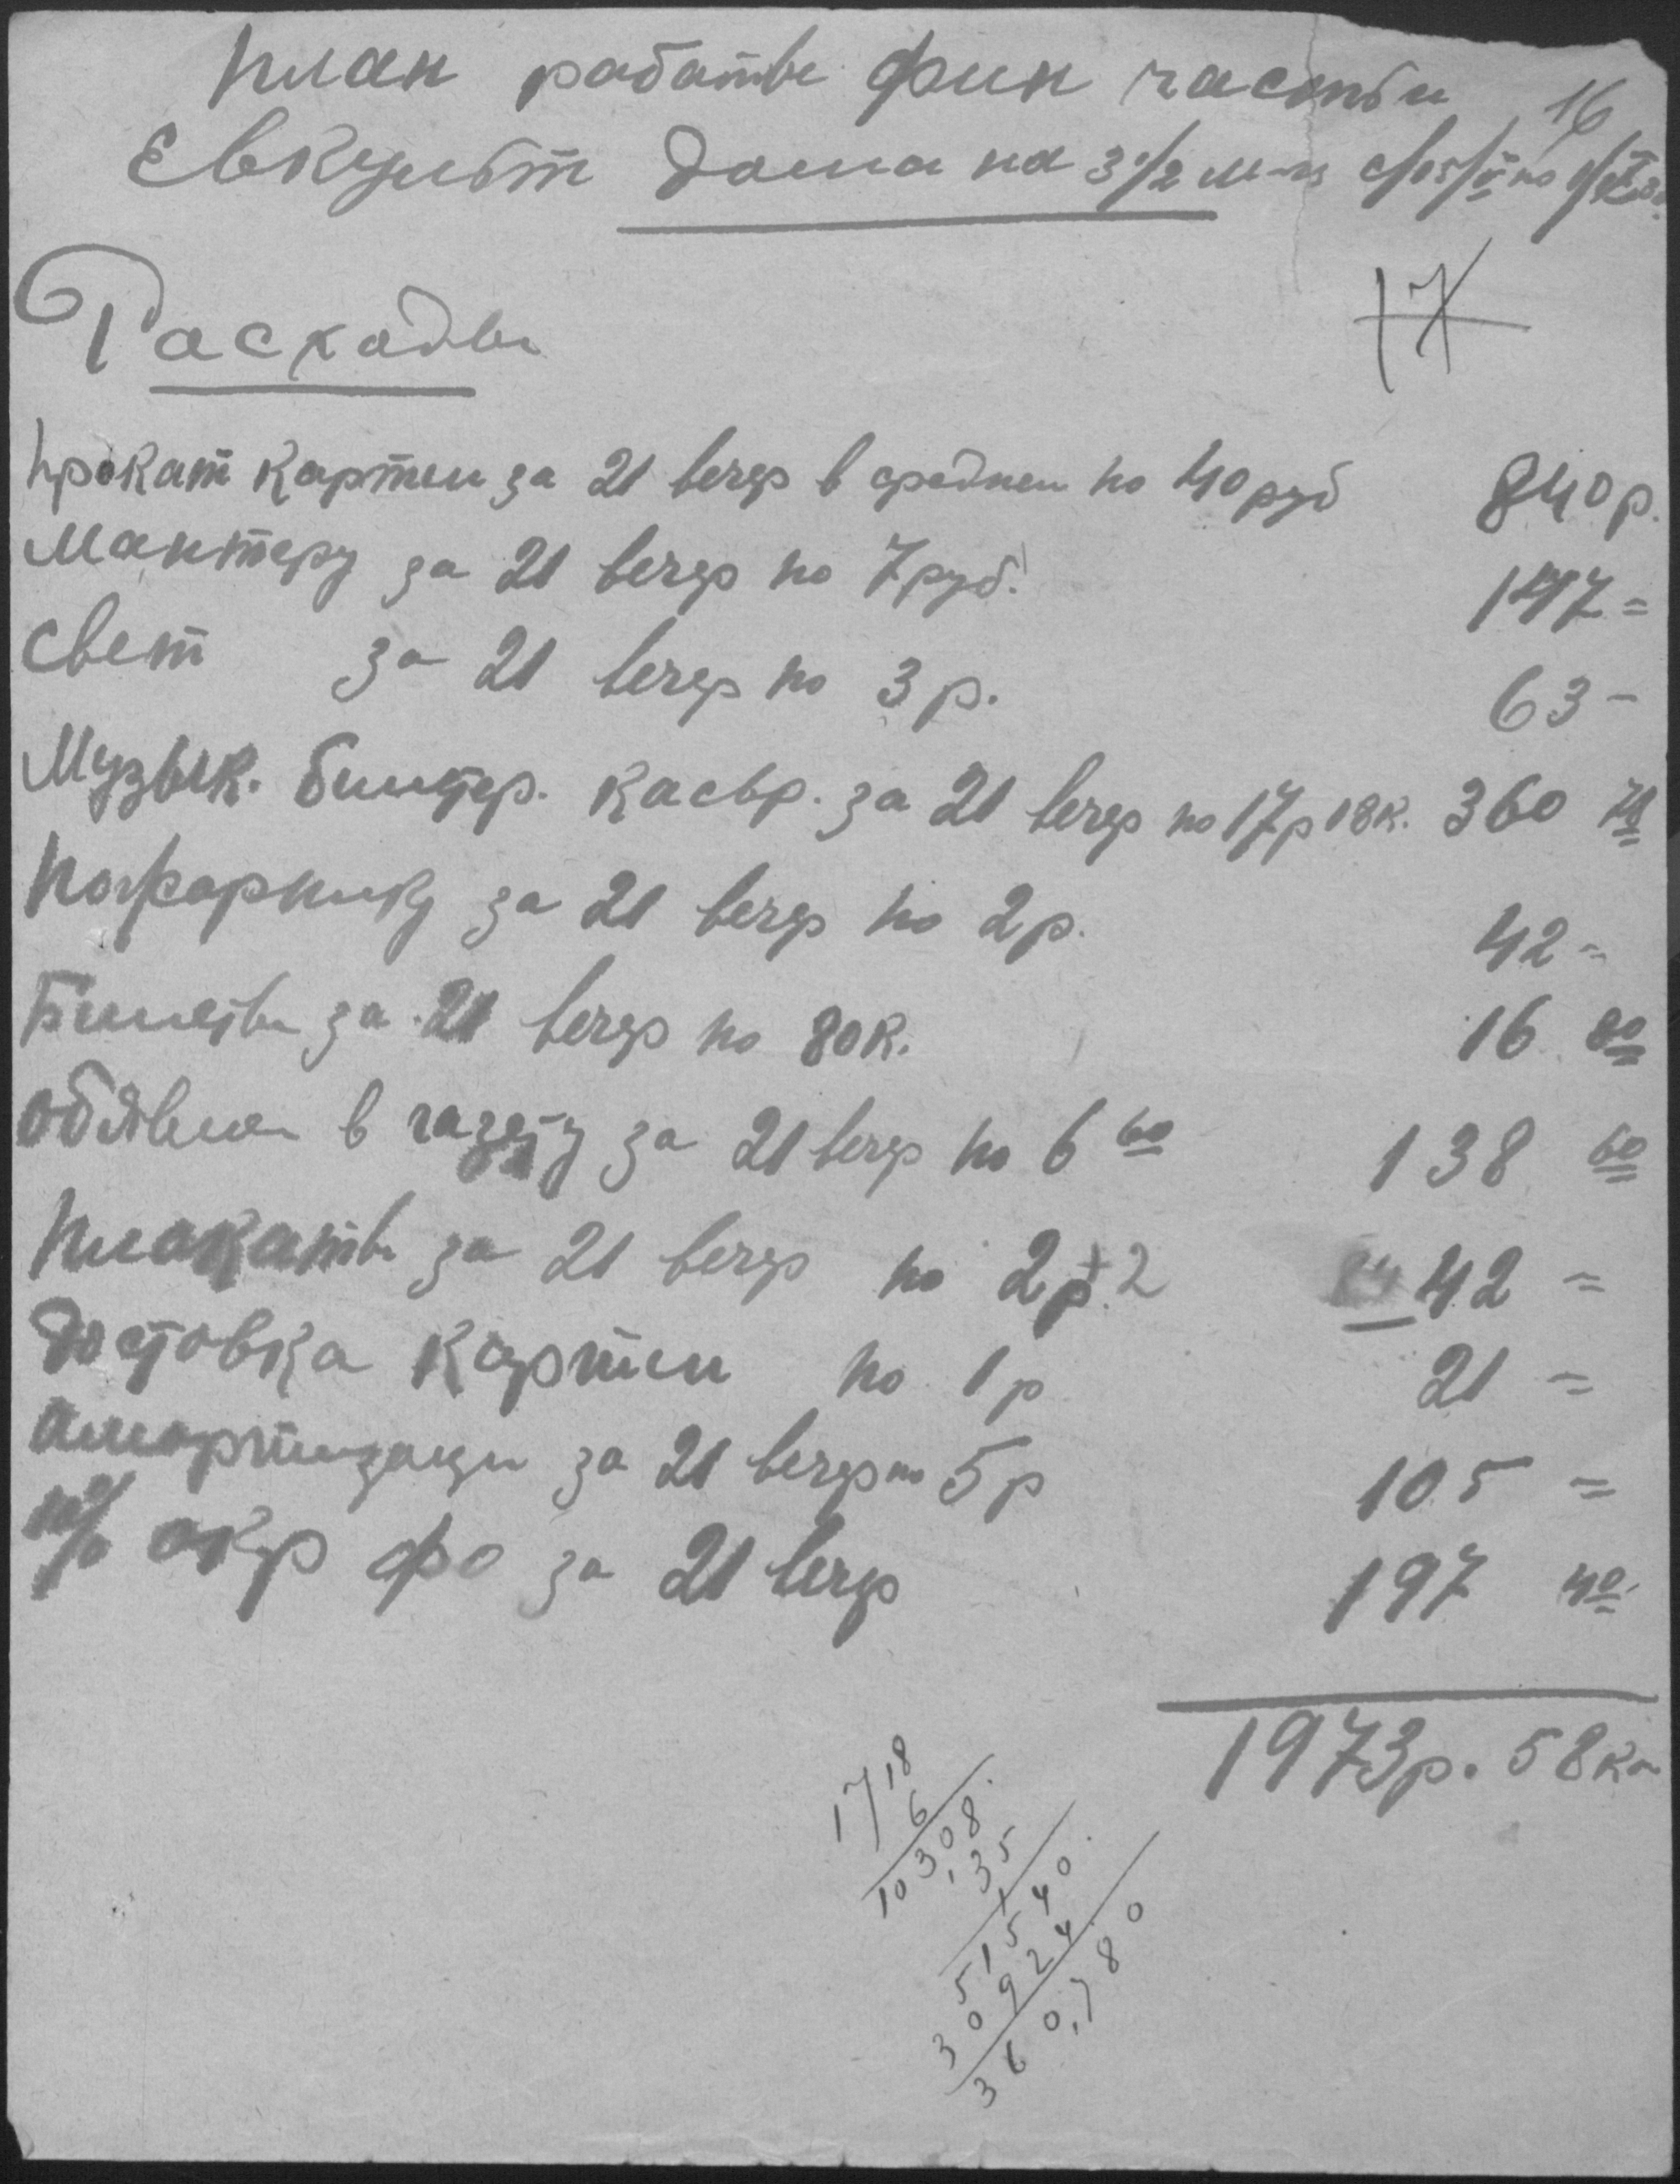 План работы фин части 16
Евкульт дома на 3 1/2 м-ца
17
Расходы
Прокат картин за 21 вечер в среднем по 40 руб 840 р.
Монтеру за 21 вечер по 7 руб. 147 =
Свет за 21 вечер по 3 р. 63 -
Музык. билетер. кассир. за 21 вечер по 17 р 18 к. 360 78
Пожарнику за 21 вечер по 2 р. 42 =
Билеты за 21 вечер по 80 к. 16 80
Обявлен в газету за 21 вечер по 6 60 138 60
Плакаты за 21 вечер по 2 р. 2 42 =
Доставка картин по 1 р 21 =
Амортизации за 21 вечер по 5 р 105 =
10% окр фо за 21 вечер 197 40
1973 р. 58 коп
1718
6
10308
35
51540
30924
360,780